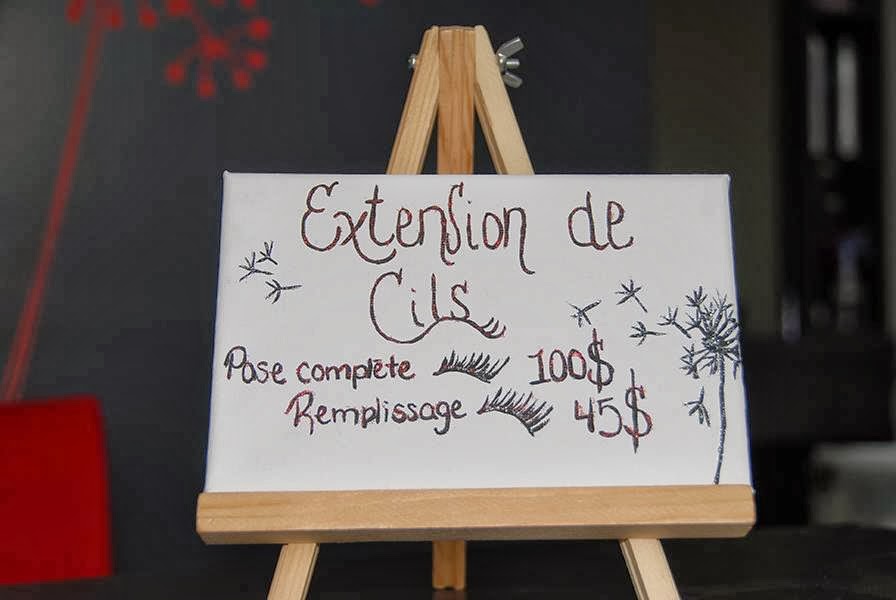 Extension de
Cils
Pose complète 100$
Remplissage 45$